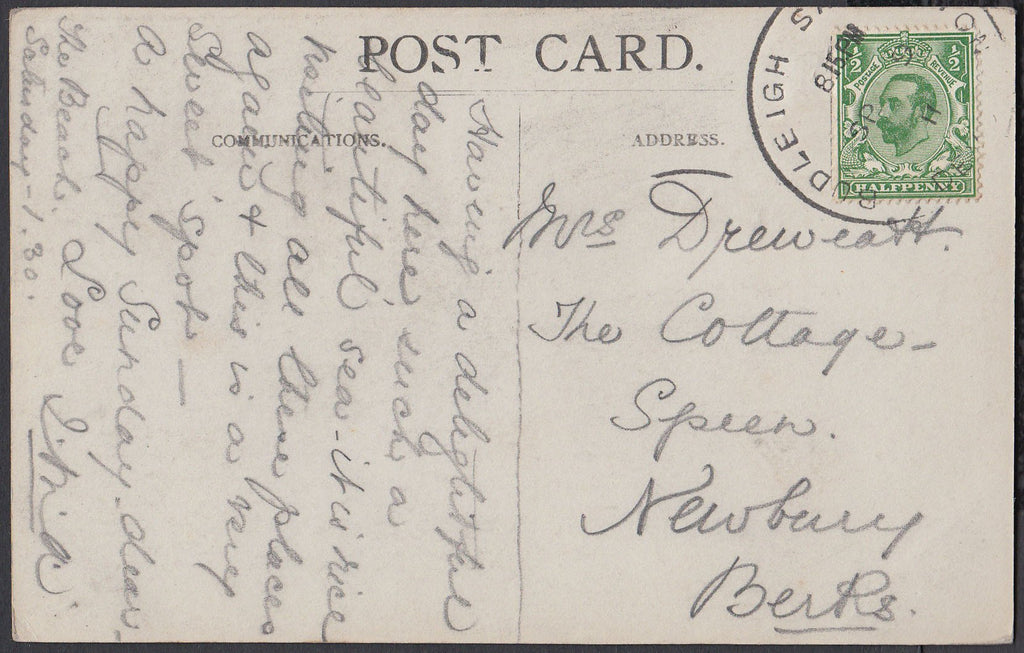 POST CARD.
COMMUNICATIONS.
ADDRESS.
BUDLEIGH SALTERTON
8 15 PM
SP
POSTAGE REVENUE
½ ½
HALFPENNY
The Beach.
Saturday - 1.30.
Having a delightful
day here such a
beautiful sea - it is nice
visiting all these places
again & this is a very
sweet spot —
a happy Sunday dear.
Love
Mrs Dreweatt.
The Cottage -
Speen.
Newbury
Berks.